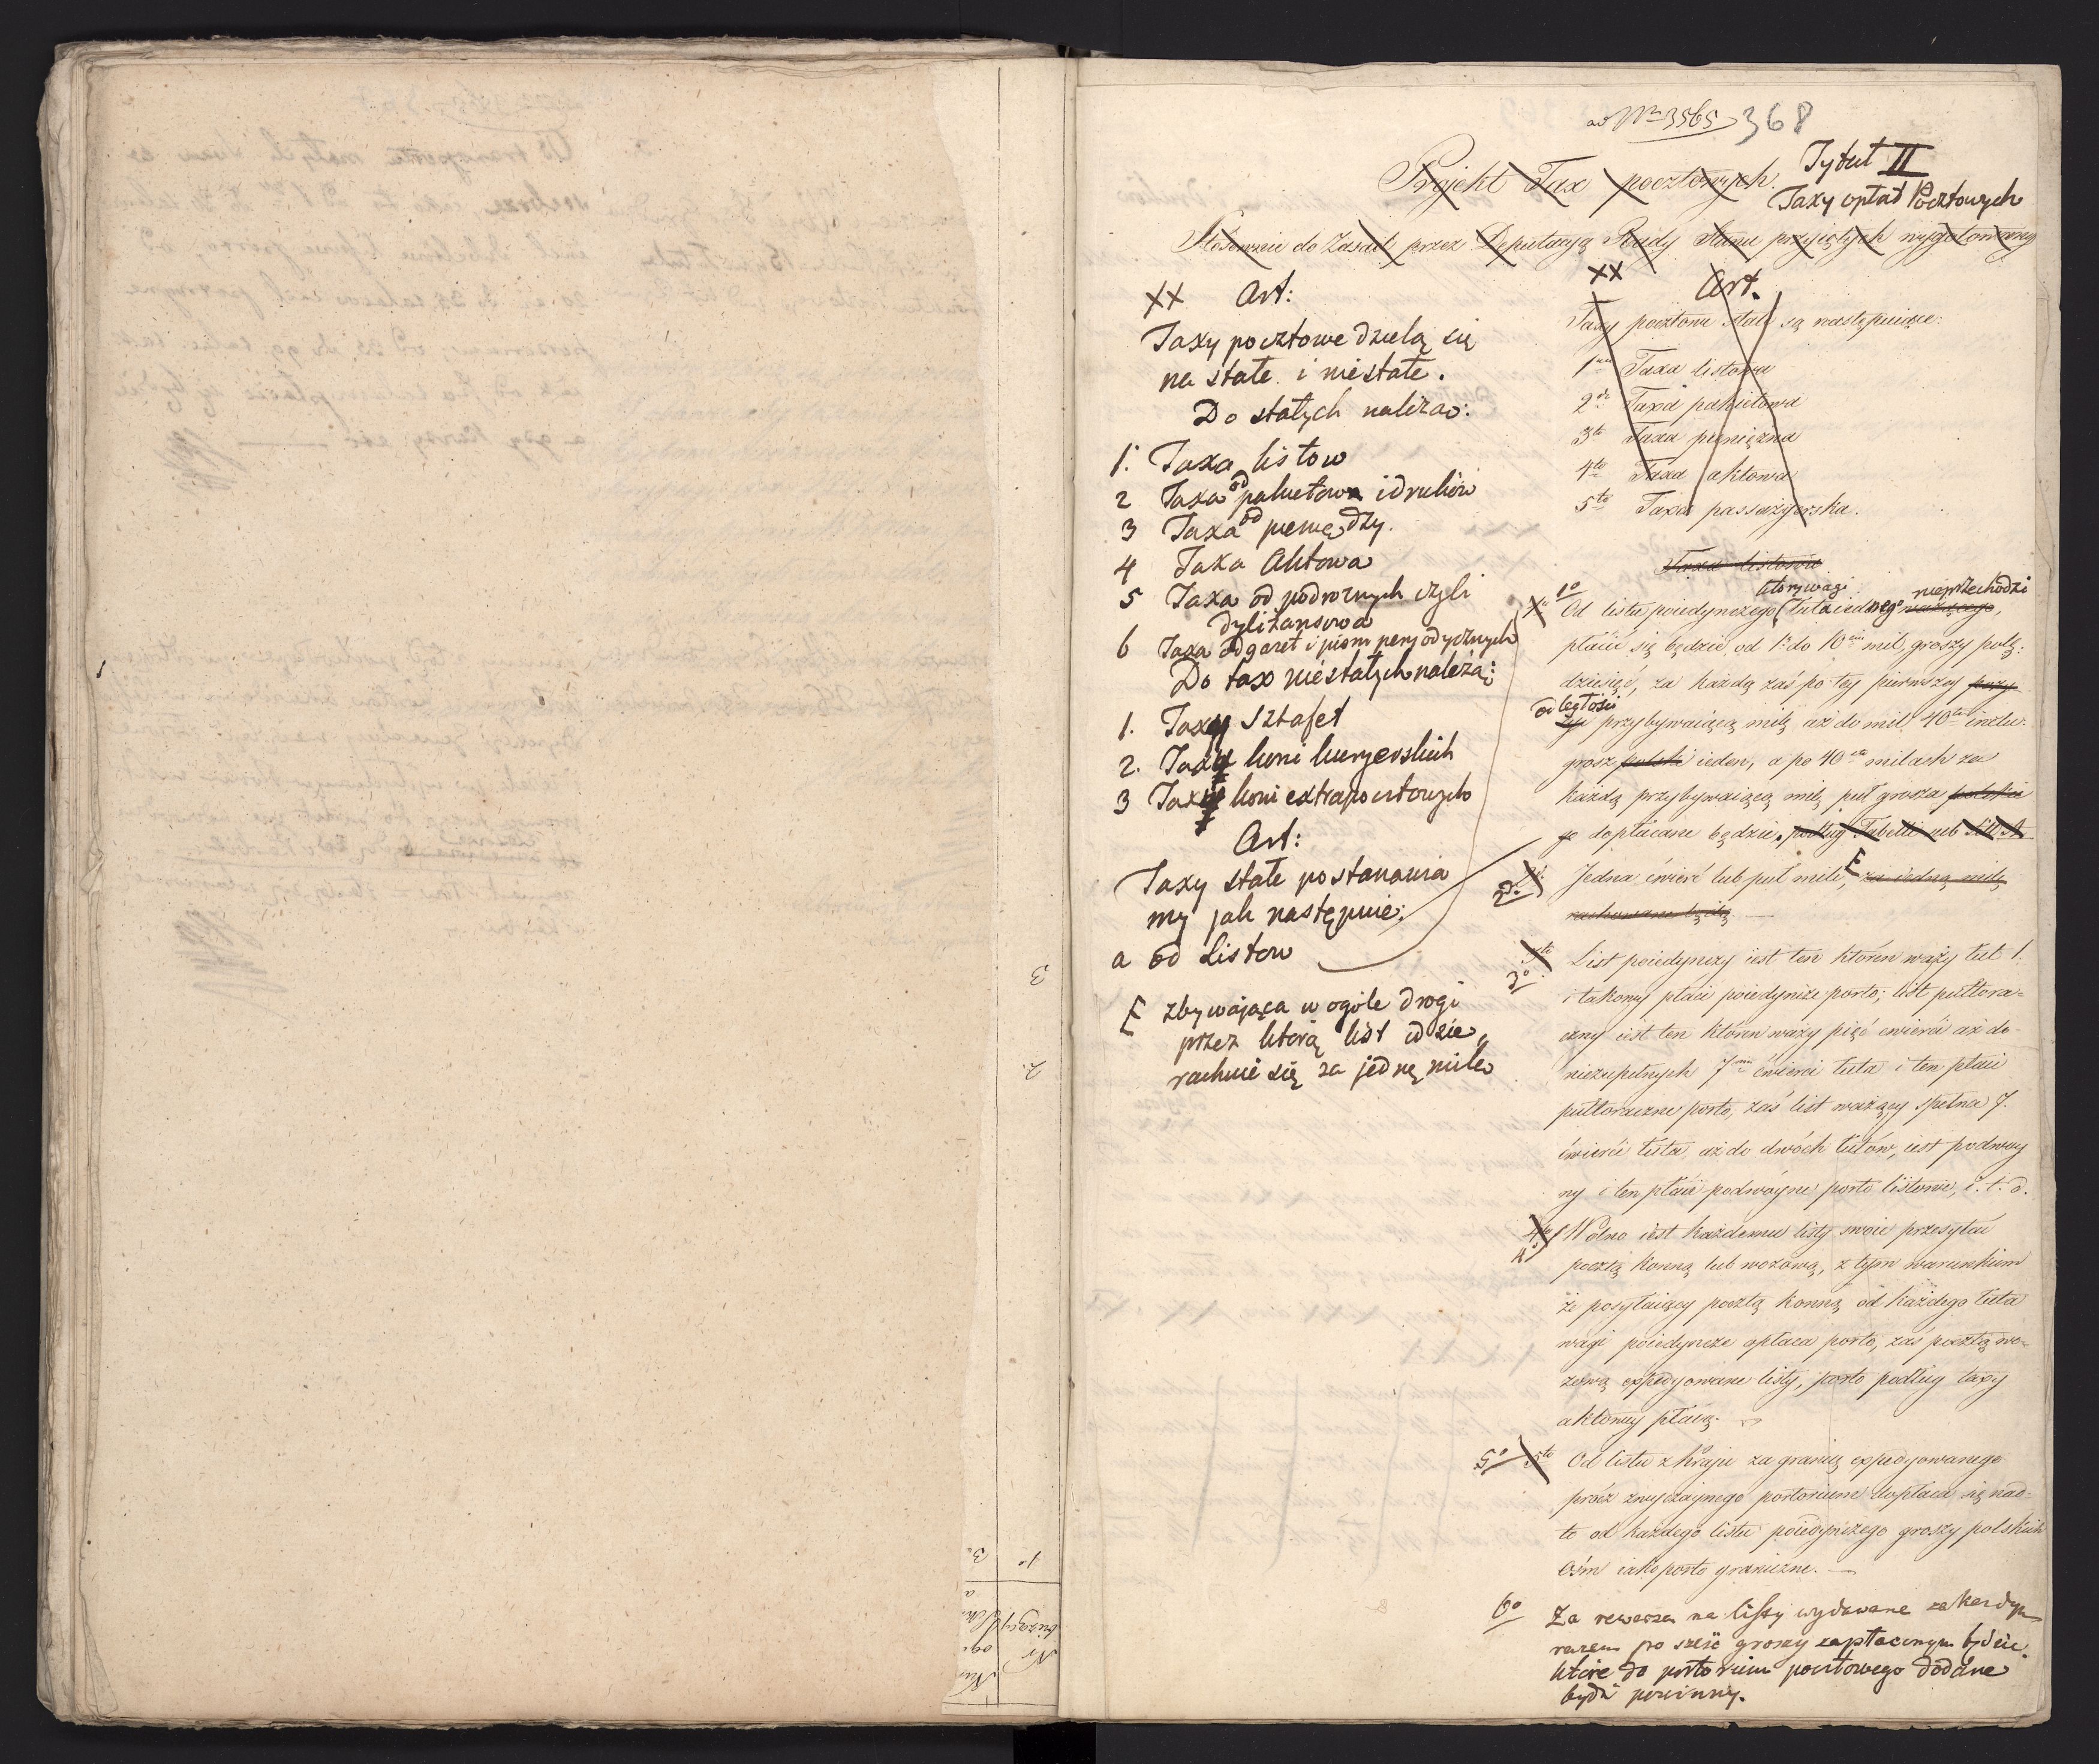 ad Nr 3565 368
Projekt Tax pocztowych. Tytuł II
Taxy opłat Pocztowych
Stosownie do Zasad przez Deputacyą Rady Stanu przyiętych wygotowany
XX Art:
Taxy pocztowe dzielą się
na stałe i niestałe.
Do stałych należą:
1. Taxa listow
2 Taxa od pakietow i druków
3 Taxa od pieniędzy.
4 Taxa Aktowa
5 Taxa od podrożnych czyli
dyliżansowa
6 Taxa od gazet i pism peryodycznych
Do tax niestałych należą:
1. Taxy Sztafet
2. Taxy koni kuryerskich
3 Taxy koni extrapocztowych
Art:
Taxy stałe postanawia
my jak następuie:
a od Listow
E zbywająca w ogóle drogi
przez którą list idzie,
rachuie się za jednę milę
XX Art.
Taxy pocztowe stałe są następuiące:
1mo Taxa listowa
2do Taxa pakietowa
3tio Taxa pieniężna
4to Taxa aktowa
5to Taxa passażyerska.
Taxa listowa
1o Od listu poiedynczego (który wagi łuta iednego ważącego, nieprzechodzi
płacić się będzie od 1. do 10ciu mil, groszy polg:
dziesięć, za każdą zaś po tey pierwszey
odległości przybywaiącą milę aż do mil 40tu inclu:
grosz polski ieden, a po 40tu milach za
każdą przybywaiącą milę puł grosza polskie
go dopłacane będzie, podług Tabelli sub Lit A
2o Jedna ćwierć lub puł mili, E za iedną milę
rachowane będą
3o List poiedynczy iest ten któren waży łut 1.
i takowy płaci poiedyncze porto; list pułtora-
czny iest ten któren waży pięć cwierci aż do
niezupełnych 7miu ćwierci łuta i ten płaci
pułtoraczne porto, zaś list ważący spełna 7.
ćwierci łuta, aż do dwóch łutów, iest podwóy
ny i ten płaci podwóyne porto listowe, i. t. d.
4o Wolno iest każdemu listy swoie przesyłać
pocztą konną lub wozową, z tym warunkiem
że posyłaiący pocztą konną od każdego łuta
wagi poiedyncze opłaca porto, zaś pocztą wo-
zową expedyowane listy, porto podług taxy
aktowey płacą.
5o 5to Od listu z kraju za granicę expedyowanego
prócz zwyczaynego portorium dopłaca się nad-
to od każdego listu poiedynczego groszy polskich
ośm iako porto graniczne.
6o Za rewersa na listy wydawane za każdym
razem po sześć groszy zapłaconym będzie
które do portorium pocztowego dodane
bydź powinny.